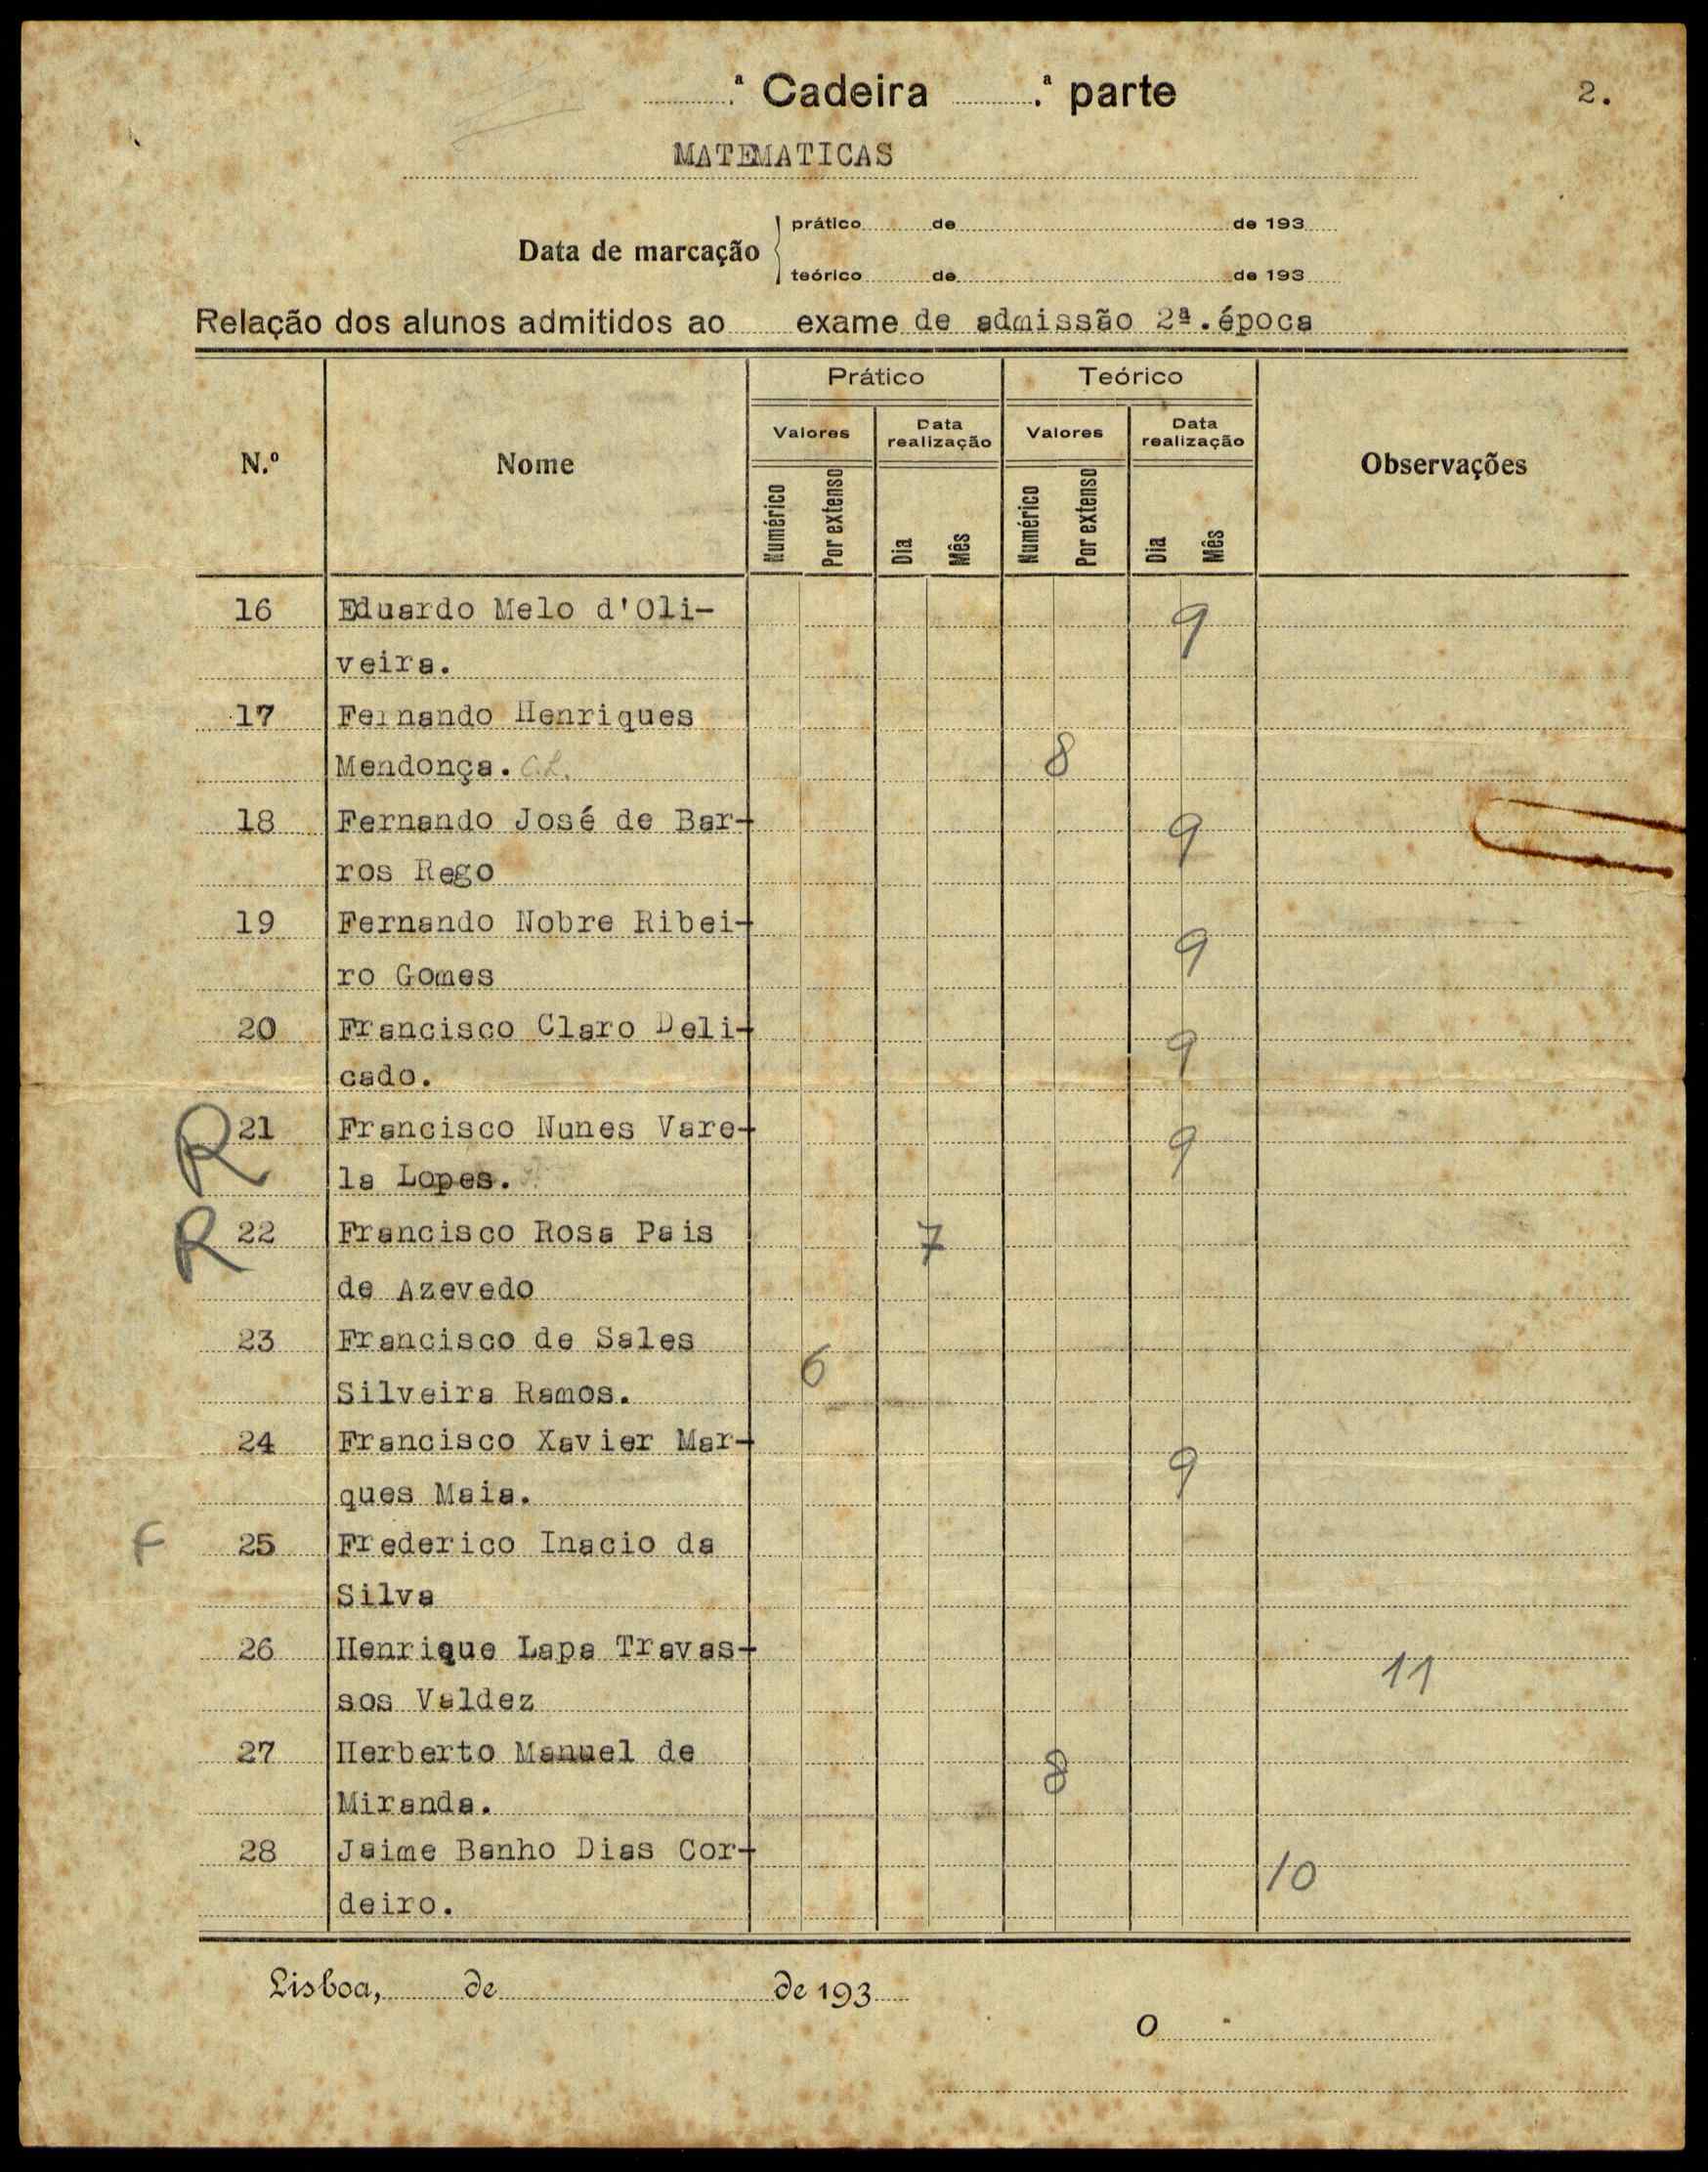 .ª Cadeira .ª parte 2.
MATEMATICAS
Data de marcação
prático de de 193
teórico de de 193
Relação dos alunos admitidos ao exame de admissão 2ª. época
N.º Nome Prático Teórico Observações
Valores Data realização Valores Data realização
Numérico Por extenso Dia Mês Numérico Por extenso Dia Mês
16 Eduardo Melo d'Oli- 9
veira.
17 Fernando Henriques
Mendonça. C.L. 8
18 Fernando José de Bar- 9
ros Rego
19 Fernando Nobre Ribei- 9
ro Gomes
20 Francisco Claro Deli- 9
cado.
R 21 Francisco Nunes Vare- 9
la Lopes.
R 22 Francisco Rosa Pais 7
de Azevedo
23 Francisco de Sales 6
Silveira Ramos.
24 Francisco Xavier Mar- 9
ques Maia.
F 25 Frederico Inacio da
Silva
26 Henrique Lapa Travas- 11
sos Valdez
27 Herberto Manuel de 8
Miranda.
28 Jaime Banho Dias Cor- 10
deiro.
Lisboa, de de 193
O